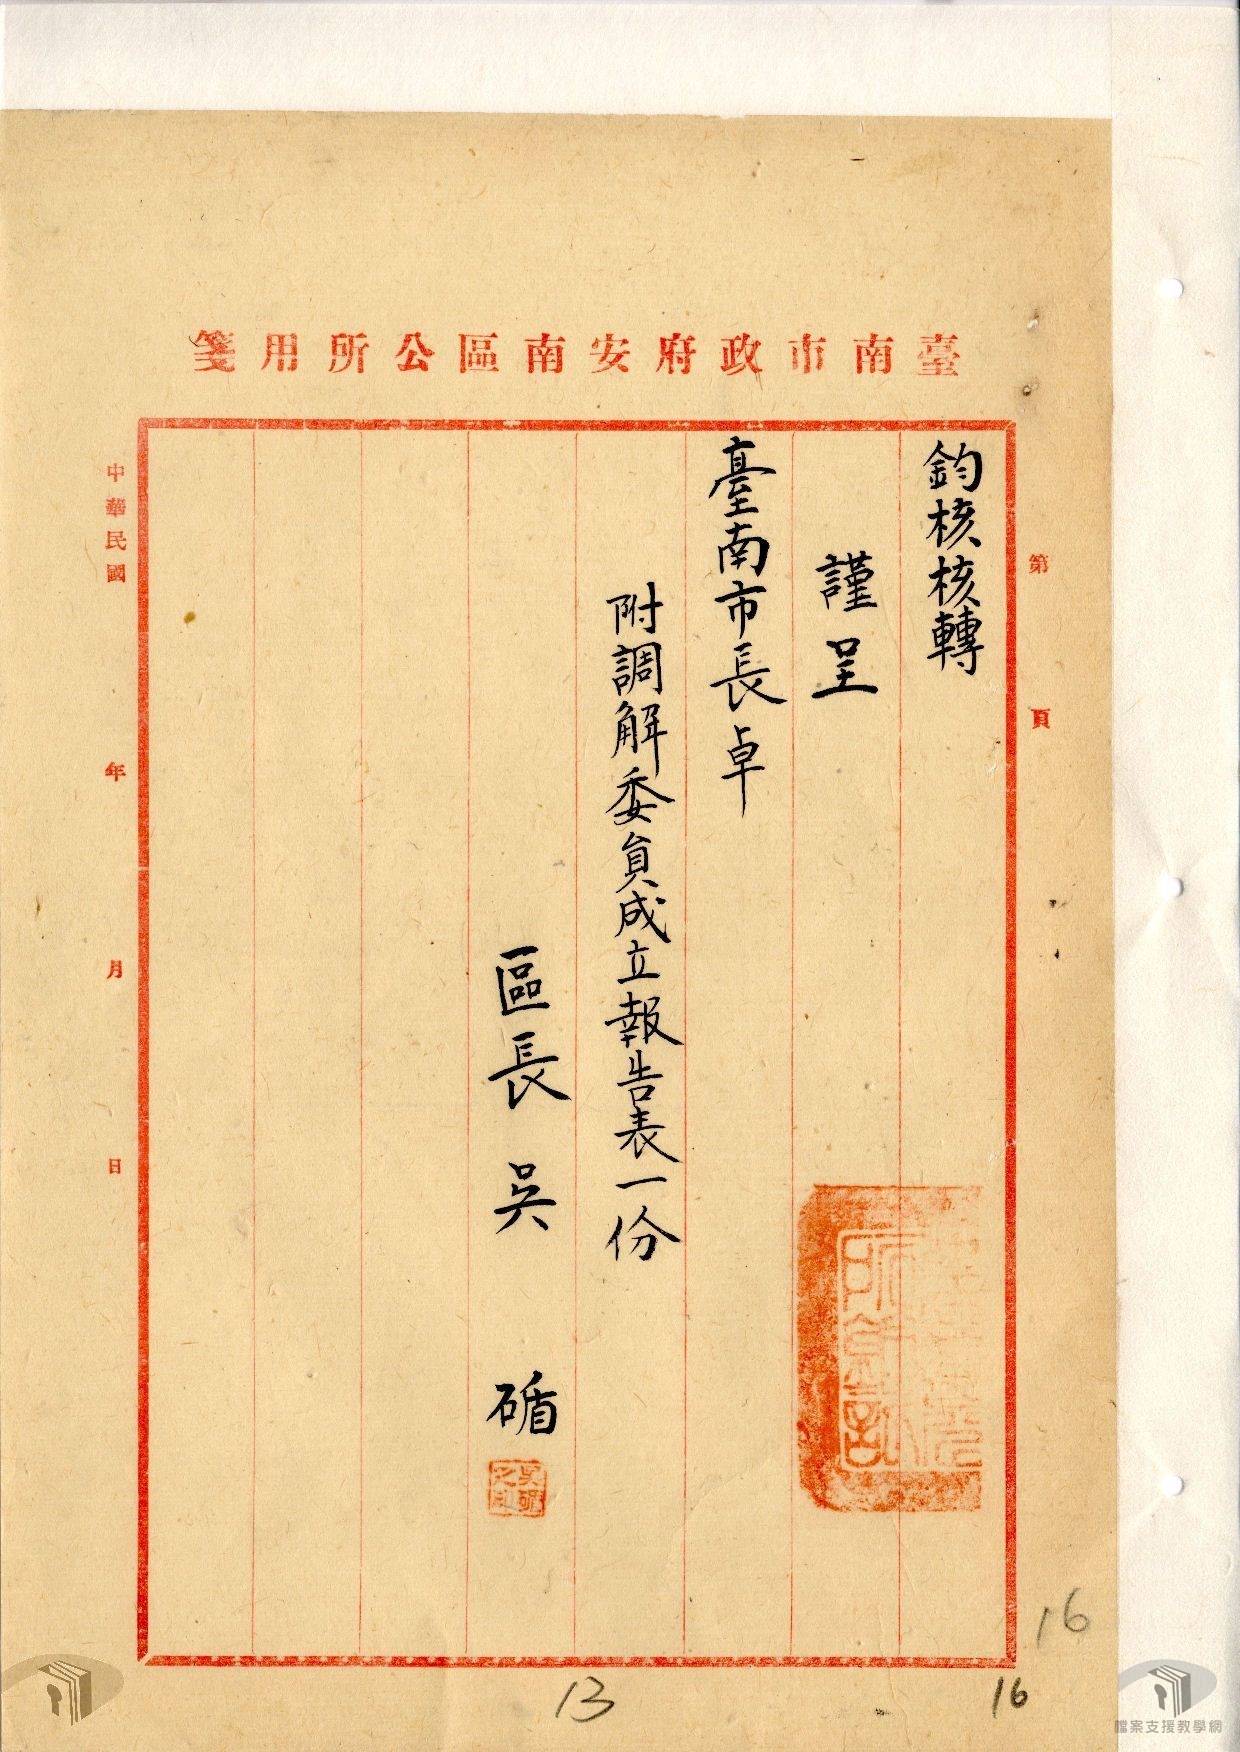 臺南市政府安南區公所用箋
第 頁
鈞核核轉
謹呈
臺南市長卓
附調解委員成立報告表一份
區長 吳 碷
中華民國 年 月 日
16
13
16
檔案支援教學網